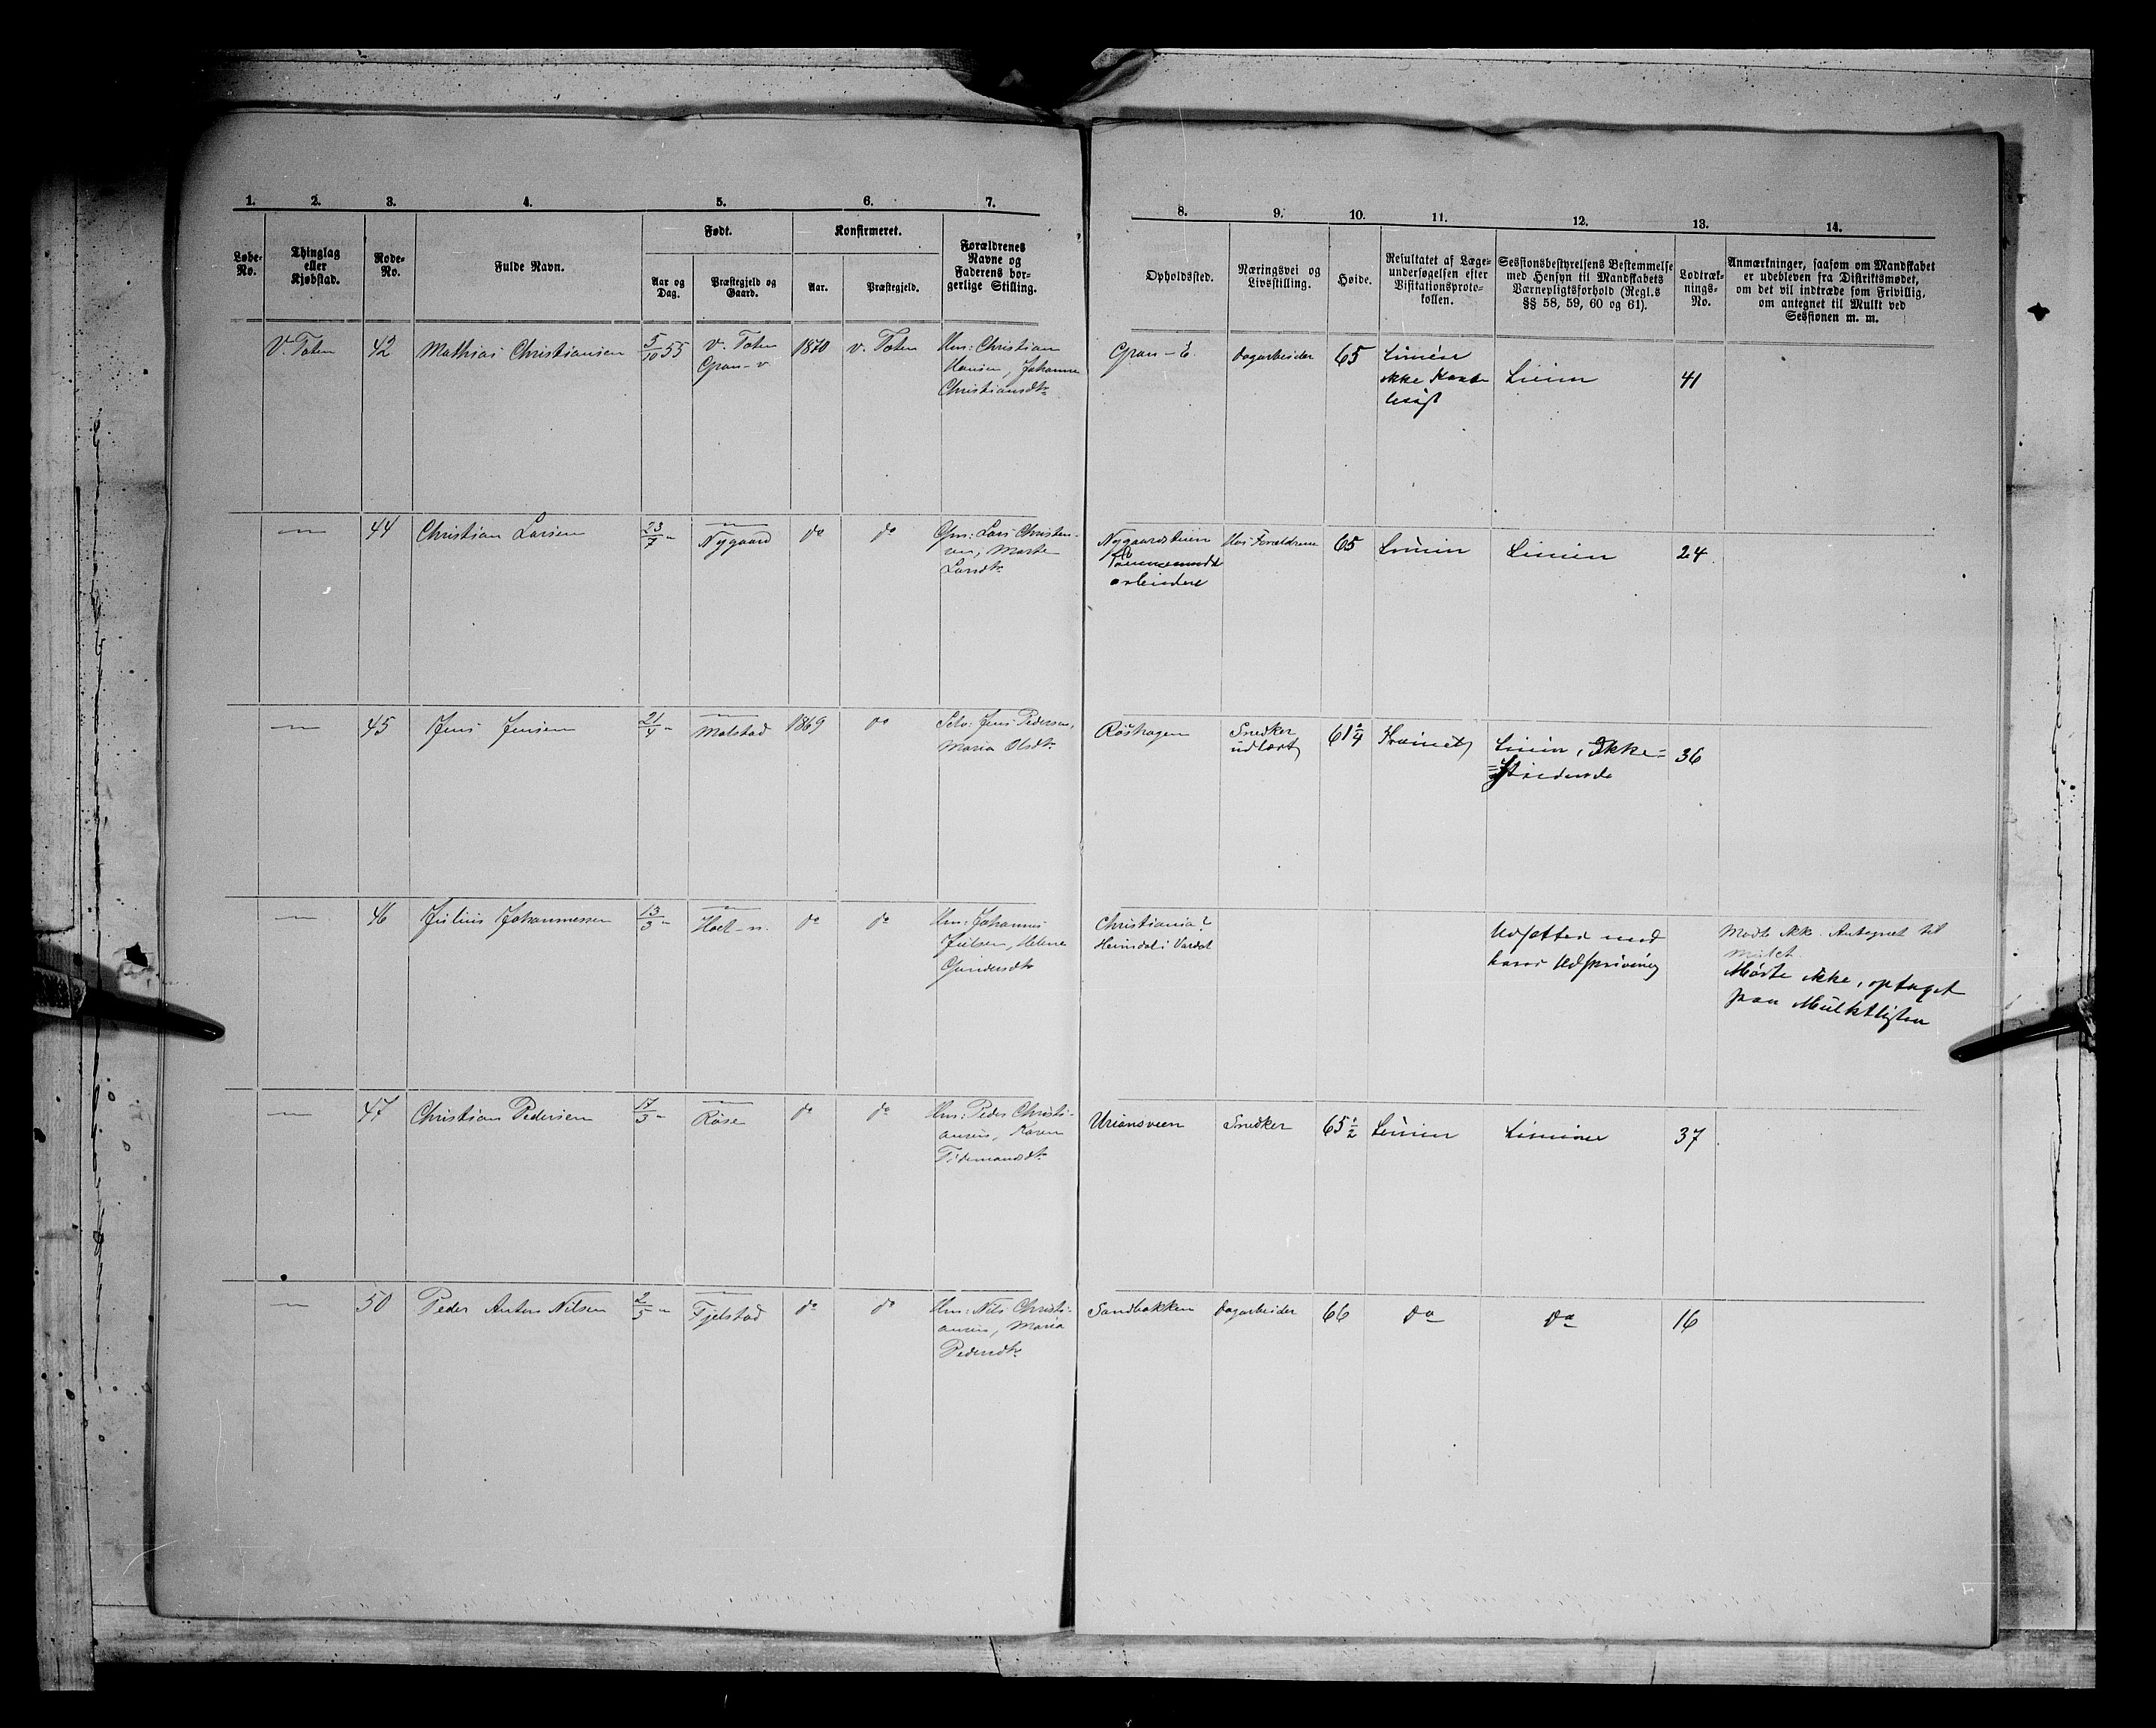 1. 2. 3. 4. 5. 6. 7.
Løbe-No. Thinglag eller Kjøbstad. Rode-No. Fulde Navn. Født. Konfirmeret. Forældrenes Navne og Faderens borgerlige Stilling.
Aar og Dag. Præstegjeld og Gaard. Aar. Præstegjeld.
8. 9. 10. 11. 12. 13. 14.
Opholdssted. Næringsvei og Livsstilling. Høide. Resultatet af Lægeundersøgelsen efter Visitationsprotokollen. Sessionsbestyrelsens Bestemmelse med Hensyn til Mandskabets Værnepligtsforhold (Regl.s §§ 58, 59, 60 og 61). Lodtræknings-No. Anmærkninger, saasom om Mandskabet er udebleven fra Distriktsmødet, om det vil indtræde som Frivillig, om antegnet til Mulkt ved Sessionen m. m.
V. Toten 42 Mathias Christiansen 5/10 55 V. Toten 1870 V. Toten Hm: Christian
Gran-v Hansen, Johanne
Christiansdtr
Gran-E. Dagarbeider 65 Linien Linien 41
ikke
44 Christian Larsen 23/7 " — Nygaard do do Gm: Lars Christen-
sen, Marte
Larsdtr
Nygaardseien Hos Forældrene 65 Linien Linien 24
arbeidere
45 Jens Jensen 21/4 " — Molstad 1869 do Selv: Jens Pedersen,
Maria Olsdtr
Røshagen Snedker 61 3/4 Trainet Linien, Ikke= 36
udlært =stridende
46 Julius Johannessen 13/3 " — Hoel-n. do do Hm: Johannes
Julsen, Helene
Gundersdtr
Christiania? Udsættes med Mødte ikke. Antegnet til
Heimdal i Vardal hans Udskrivning Mulct.
Mødte ikke, optaget
paa Mulktlisten
47 Christian Pedersen 17/3 " — Røise do do Hm: Peder Christi-
ansen, Karen
Tidemandsdtr
Uriansveen Snedker 65 1/2 Linien Linien 37
50 Peder Anton Nilsen 2/5 " — Fjelstad do do Hm: Nils Christi-
ansen, Maria
Pedersdtr
Sandbakken Dagarbeider 66 do do 16